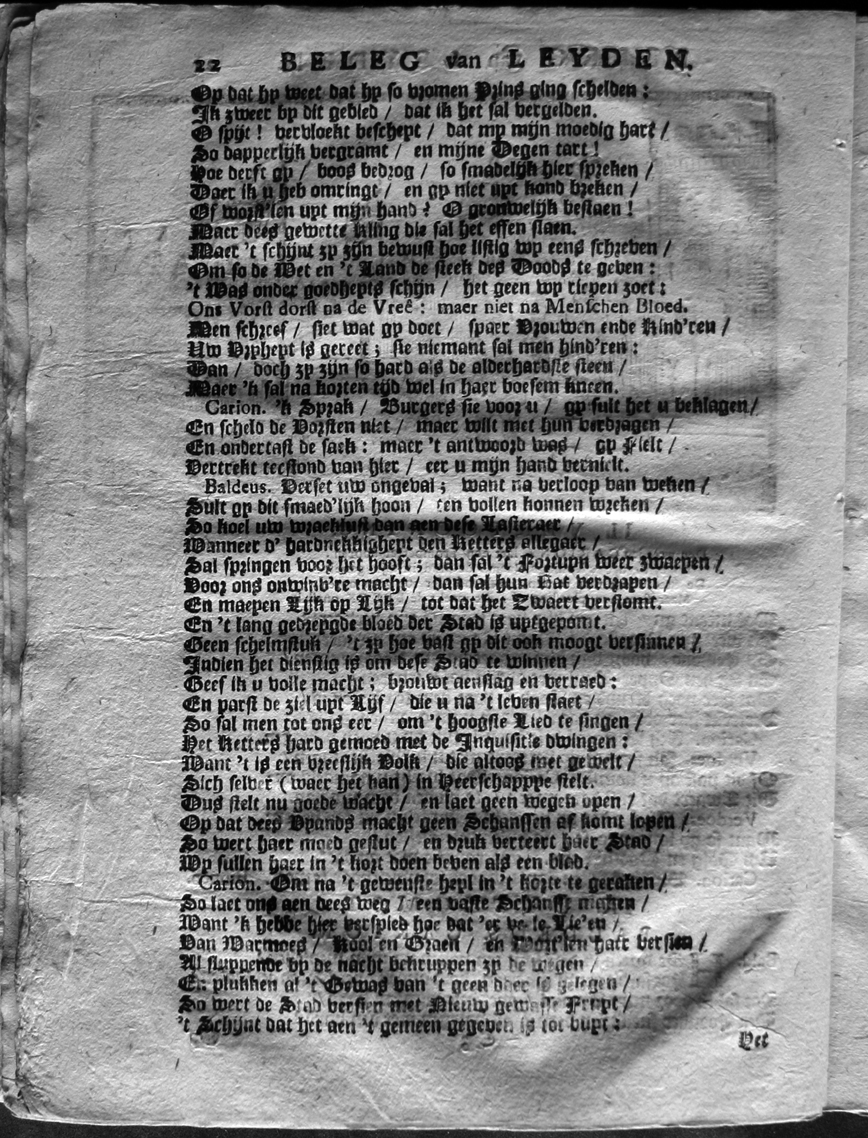 22 BELEG van LEYDEN.
Op dat hy weet dat hy so vromen Prins ging schelden :
Ik zweer by dit gebied / dat ik het sal vergelden.
O spijt ! vervloekt beschept / dat my mijn moedig hart /
So dapperlijk vergramt / en mijne Degen tart !
Hoe derft gy / boos bedrog / so smadelijk hier spreken /
Daer ik u heb omringt / en gy niet uyt kond breken /
Of worst'len uyt mijn hand ? O grouwelijk bestaen !
Maer dees gewette kling die sal het effen slaen.
Maer 't schijnt zy zijn bewust hoe listig wy eens schreven /
Om so de Wet en 't Land de steek des Doods te geven :
't Was onder goedheyts schijn / het geen wy riepen zoet :
Ons Vorst dorst na de Vreê : maer niet na Menschen Bloed.
Men schreef / siet wat gy doet / spaer Vrouwen ende Kind'ren /
Uw Vryheyt is gereet ; sie niemant sal men hind'ren :
Dan / doch zy zijn so hard als de alderhardste steen /
Maer 'k sal na korten tijd wel in haer boesem kneen.
Carion. 'k Sprak / Burgers sie voor u / gy sult het u beklagen /
En scheld de Vorsten niet / maer wilt met hun verdragen /
En ondertast de sack : maer 't antwoord was / gy Fielt /
Vertrekt teestond van hier / eer u mijn hand vernielt.
Baldeus. Verset uw ongeval ; want na verloop van weken /
Sult gy dit smaed'lijk hoon / ten vollen konnen wreken /
So koel uw wraeklust dan aen dese Lasteraer /
Wanneer d' hardnekkigheyt den Ketters allegaer /
Sal springen voor het hooft ; dan sal 't Fortuyn weer zwaeyen /
Voor ons onwinb're macht / dan sal hun Rat verdrayen /
En maeyen Lijk op Lijk / tot dat het Zwaert verstomt.
En 't lang gedreygde bloed der Stad is uytgepomt.
Geen schelmstuk / 't zy hoe vast gy dit ook moogt versinnen /
Indien het dienstig is om dese Stad te winnen /
Geef ik u volle macht ; brouwt aenslag en verraed :
En parst de ziel uyt Lijf / die u na 't leven staet /
So sal men tot ons eer / om 't hoogste Lied te singen /
Het Ketters hard gemoed met de Inquisitie dwingen :
Want 't is een vreeslijk Volk / die altoos met gewelt /
Sich selver ( waer het kan ) in Heerschappye stelt.
Dus stelt nu goede wacht / en laet geen wegen open /
Op dat dees Vyands macht geen Schanssen af komt lopen /
So wert haer moed gestut / en druk verteert haer Stad /
Wy sullen haer in 't kort doen beven als een blad.
Carion. Om na 't gewenste heyl in 't korte te geraken /
So laet ons aen dees weg / een vaste Schansse maken /
Want 'k hebbe hier verspied hoe dat 'er vele Lie'en /
Van Warmoes / Kool en Graen / en Wort'len haer versien /
Al sluypende by de nacht bekruypen zy de wegen /
En plukken al 't Gewas van 't geen daer is gelegen /
So wert de Stad versien met Nieuw gewasse Fruyt /
't Schijnt dat het aen 't gemeen gegeven is tot buyt :
Het